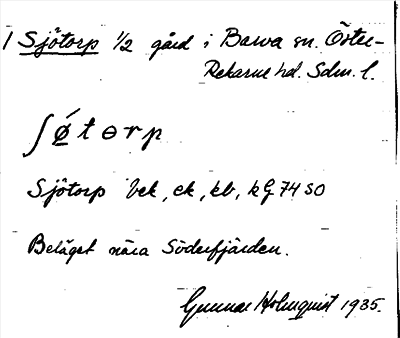 1 Sjötorp 1/2 gård i Barva sn. Öster-
Rekarne hd. Sdm. l.
ʃǿtɵrp
Sjötorp bek, ek, kb, kG 74 SO
Beläget nära Söderfjärden.
Gunnar Holmquist 1935.